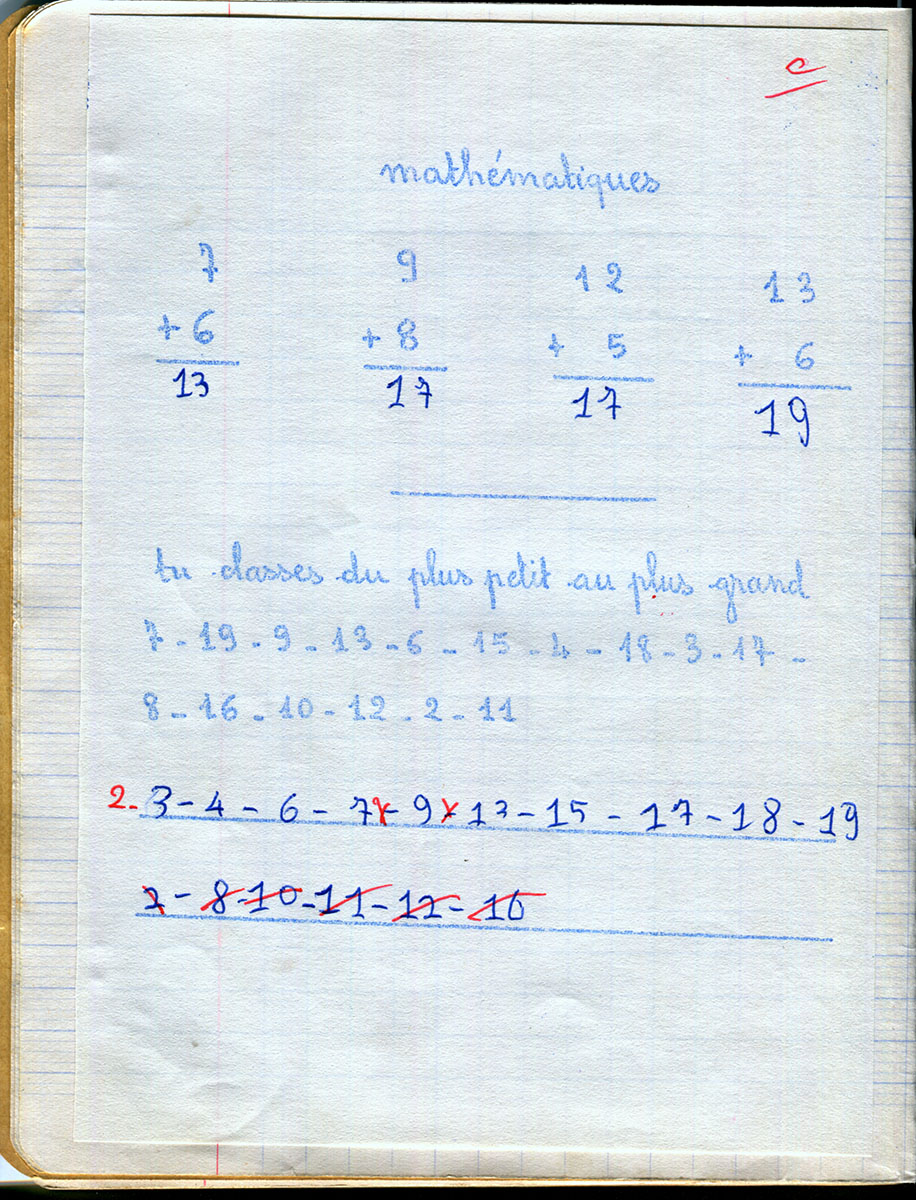 c
mathématiques
7 9 12 13
+ 6 + 8 + 5 + 6
13 17 17 19
tu classes du plus petit au plus grand
7 - 19 - 9 - 13 - 6 - 15 - 4 - 18 - 3 - 17 -
8 - 16 - 10 - 12 - 2 - 11
2 - 3 - 4 - 6 - 7 - 9 - 13 - 15 - 17 - 18 - 19
2 - 8 - 10 - 11 - 12 - 16